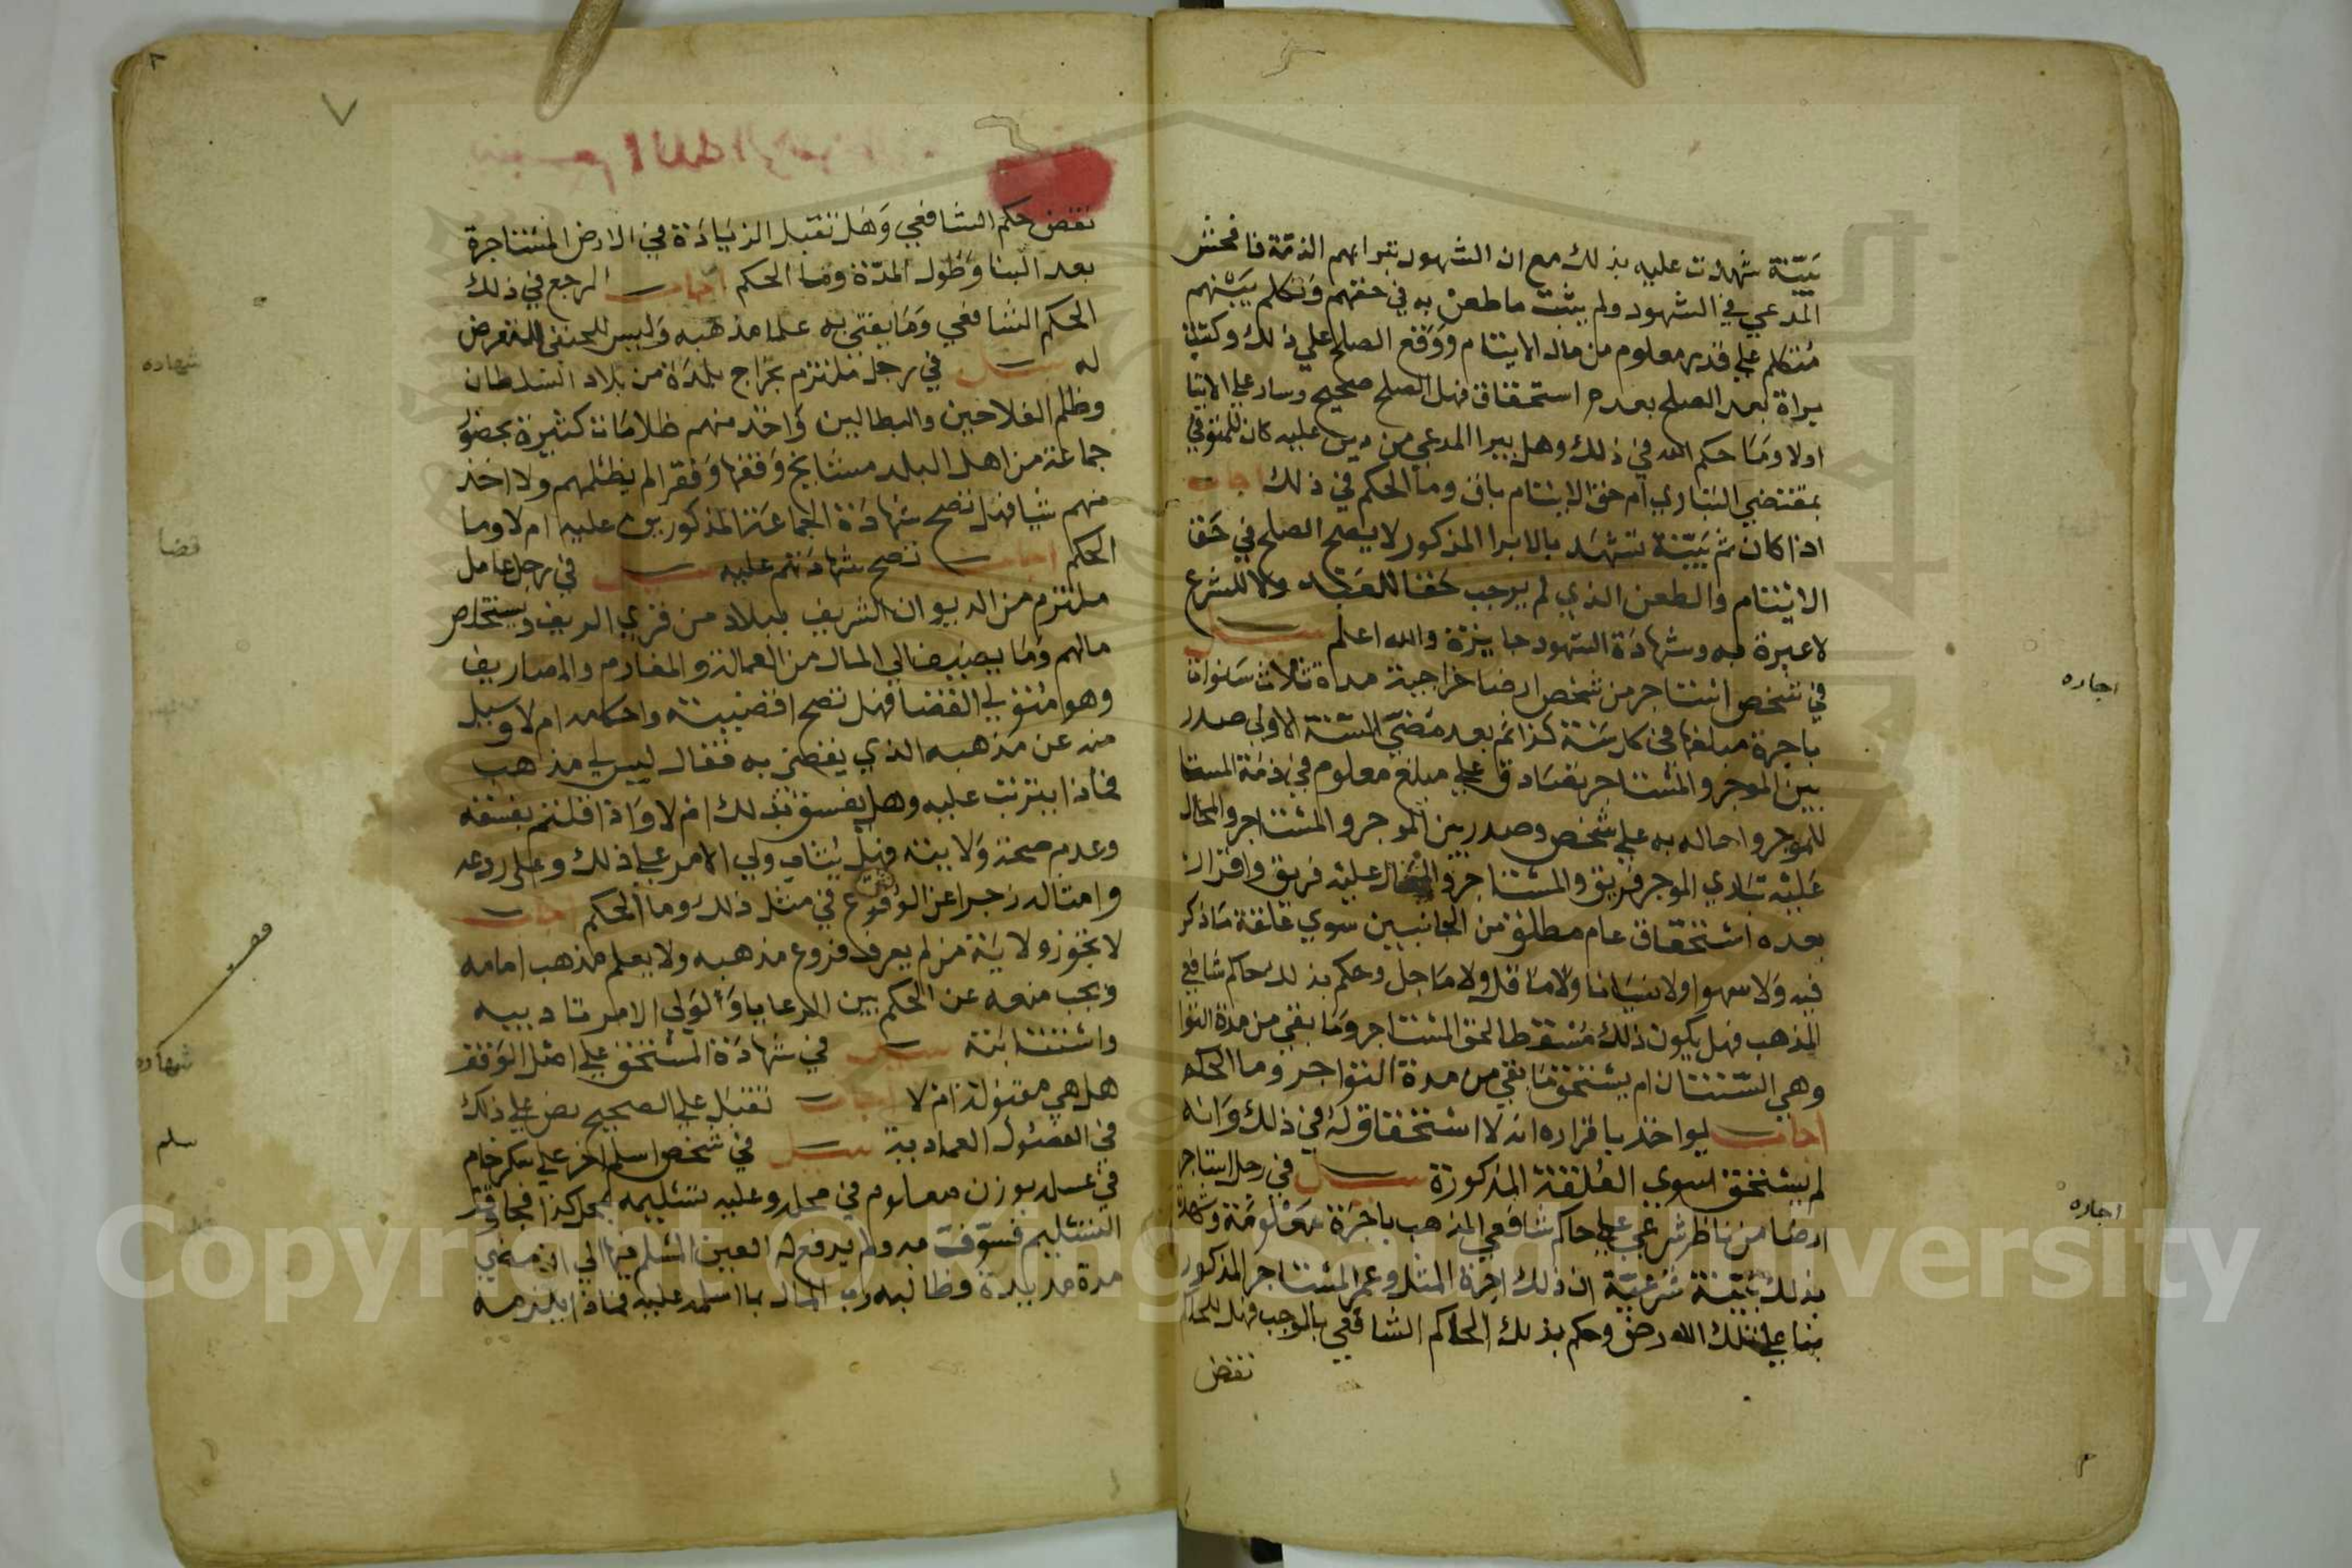 بينة شهدت عليه بذلك مع ان الشهود تبرايهم الذمة فافحش
المدعي في الشهود ولم يثبت ما طعن به في حقهم وتكلم بينهم
متكلم علي قدر معلوم من مال الايتام ووقع الصلح علي ذلك وكتب
براة بعد الصلح بعدم استحقاق فهل الصلح صحيح وساد علي الايتا
اولا وما حكم الله في ذلك وهل يبرا المدعي من دين عليه كان للمتوفي
بمقتضي التباري ام حق الايتام باق وما الحكم في ذلك اجاب
اذا كان ثم بينة تشهد بالابرا المذكور لا يصح الصلح في حق
الايتام والطعن الذي لم يوجب حقا للعبد ولا للشرع
لا عبرة به وشهادة الشهود جايزة والله اعلم سيل
في شخص استاجر من شخص ارضا خراجية مدة ثلاث سنوات
باجرة مبلغها في كل سنة كذا ثم بعد مضي السنة الاولي صدر
بين الموجر والمستاجر تصادق علي مبلغ معلوم في ذمة المستا
للموجر واحاله به علي شخص وصدر بين الموجر والمستاجر والمحال
عليه تباري الموجر فريق والمستاجر والمحال عليه فريق واقرار
بعده استحقاق عام مطلق من الجانبين سوي علقة ما ذكر
فيه ولا سهوا ولا نسيانا ولا ما قل ولا ما جل وحكم بذلك حاكم شافعي
المذهب فهل يكون ذلك مسقطا لحق المستاجر وما بقي من مدة التوا
وهي السنتان ام يستحق ما بقي من مدة التواجر وما الحكم
اجاب يواخذ باقراره انه لا استحقاق له في ذلك وانه
لم يستحق سوي العلقة المذكورة سيل في رجل استاجر
ارضا من ناظر شرعي علي حاكم شافعي المذهب باجرة معلومة وشهد
بذلك بينة شرعية ان ذلك اجرة المثل وعمر المستاجر المذكور
بنا علي تلك الارض وحكم بذلك الحاكم الشافعي بالموجب فهل للحاكم
نقض
اجاره
اجاره
بسم الله الرحمن
نقض حكم الشافعي وهل تقبل الزيادة في الارض المستاجرة
بعد البنا وطول المدة وما الحكم اجاب المرجع في ذلك
الحكم الشافعي وما يفتي به علما مذهبه وليس للحنفي التعرض
له سيل في رجل ملتزم بخراج بلدة من بلاد السلطان
وظلم الفلاحين والبطالين واخذ منهم ظلامات كثيرة بحضو
جماعة من اهل البلد مشايخ وفقها وفقرا لم يظلمهم ولا اخذ
منهم شيا فهل تصح شهادة الجماعة المذكورين عليه ام لا وما
الحكم اجاب تصح شهادتهم عليه سيل في رجل عامل
ملتزم من الديوان الشريف ببلاد من قري الريف ويستخلص
مالهم وما يضيف الي المال من العمالة والمغارم والمصاريف
وهو متولي القضا فهل تصح اقضيته واحكامه ام لا وسيل
منه عن مذهبه الذي يقضي به فقال ليس لي مذهب
فماذا يترتب عليه وهل يفسق بذلك ام لا واذا قلتم بفسقه
وعدم صحة ولايته فهل يثاب ولي الامر علي ذلك وعلي ردعه
وامثاله زجرا عن الوقوع في مثل ذلك وما الحكم اجاب
لا تجوز ولاية من لم يعرف فروع مذهبه ولا يعلم مذهب امامه
ويجب منعه عن الحكم بين الرعايا ولولي الامر تاديبه
واستتابته سيل في شهادة المستحق علي اصل الوقف
هل هي مقبولة ام لا اجاب تقبل علي الصحيح نص علي ذلك
في الفصول العمادية سيل في شخص اسلم اخر علي سكر خام
في عسل بوزن معلوم في محل وعليه تسليمه بمحل كذا فجا وقت
التسليم فسوفه به ولم يدفع له العين المسلم فيها الي ان مضي
مدة مديدة وطالبه رب المال بما اسلمه عليه فماذا يلزمه
شهاده
قضا
شهاده
سلم
Copyright © King Saud University